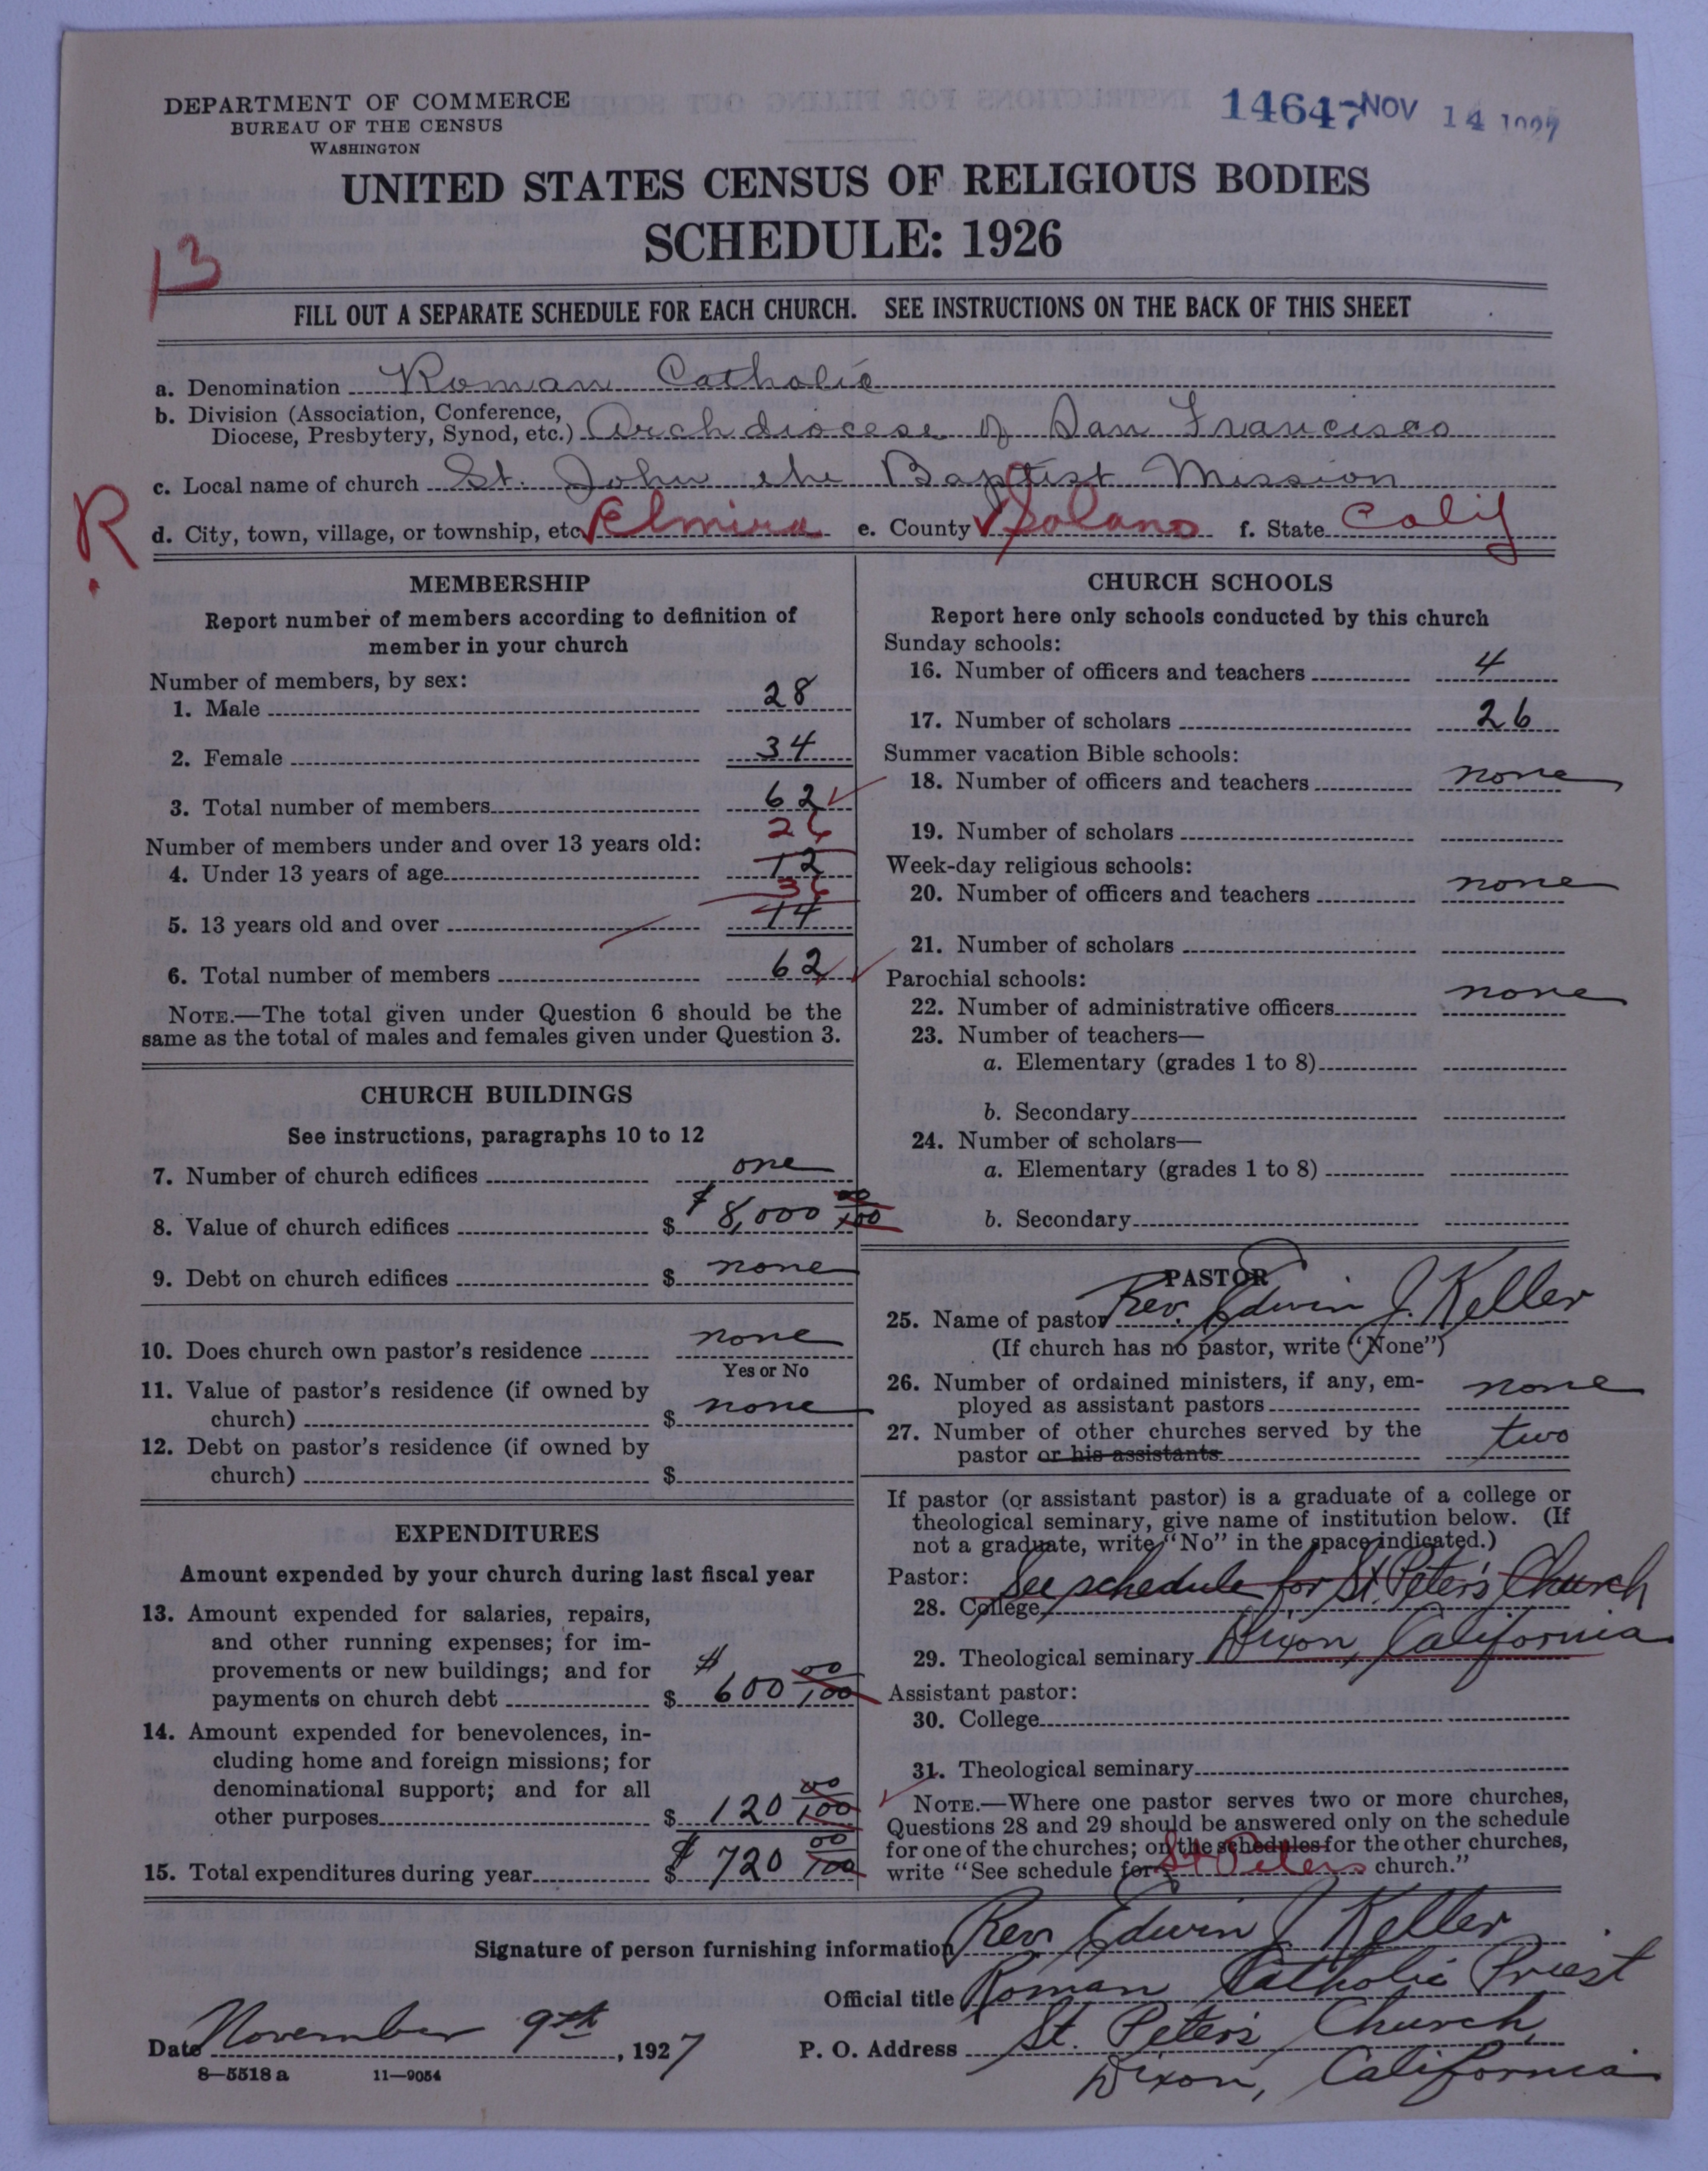 DEPARTMENT OF COMMERCE
BUREAU OF THE CENSUS
WASHINGTON
14647 NOV 14 1927
UNITED STATES CENSUS OF RELIGIOUS BODIES
SCHEDULE: 1926
13
FILL OUT A SEPARATE SCHEDULE FOR EACH CHURCH. SEE INSTRUCTIONS ON THE BACK OF THIS SHEET
a. Denomination Roman Catholic
b. Division (Association, Conference,
Diocese, Presbytery, Synod, etc.) Archdiocese of San Francisco
c. Local name of church St. John the Baptist Mission
R.
d. City, town, village, or township, etc. Elmira e. County Solano f. State Calif
MEMBERSHIP
Report number of members according to definition of
member in your church
Number of members, by sex:
1. Male 28
2. Female 34
3. Total number of members 62
26
Number of members under and over 13 years old:
4. Under 13 years of age 12
36
5. 13 years old and over 14
6. Total number of members 62
NOTE.—The total given under Question 6 should be the
same as the total of males and females given under Question 3.
CHURCH BUILDINGS
See instructions, paragraphs 10 to 12
7. Number of church edifices one
8. Value of church edifices $ $ 8,000 00/100
9. Debt on church edifices $ none
10. Does church own pastor's residence none
Yes or No
11. Value of pastor's residence (if owned by
church) $ none
12. Debt on pastor's residence (if owned by
church) $
EXPENDITURES
Amount expended by your church during last fiscal year
13. Amount expended for salaries, repairs,
and other running expenses; for im-
provements or new buildings; and for
payments on church debt $ $ 600 00/100
14. Amount expended for benevolences, in-
cluding home and foreign missions; for
denominational support; and for all
other purposes $ 120 00/100
15. Total expenditures during year $ $ 720 00/100
CHURCH SCHOOLS
Report here only schools conducted by this church
Sunday schools:
16. Number of officers and teachers 4
17. Number of scholars 26
Summer vacation Bible schools:
18. Number of officers and teachers none
19. Number of scholars
Week-day religious schools:
20. Number of officers and teachers none
21. Number of scholars
Parochial schools:
22. Number of administrative officers none
23. Number of teachers—
a. Elementary (grades 1 to 8)
b. Secondary
24. Number of scholars—
a. Elementary (grades 1 to 8)
b. Secondary
PASTOR
25. Name of pastor Rev. Edwin J. Keller
(If church has no pastor, write "None")
26. Number of ordained ministers, if any, em-
ployed as assistant pastors none
27. Number of other churches served by the
pastor or his assistants two
If pastor (or assistant pastor) is a graduate of a college or
theological seminary, give name of institution below. (If
not a graduate, write "No" in the space indicated.)
Pastor: See schedule for St. Peter's Church
28. College
29. Theological seminary Dixon, California
Assistant pastor:
30. College
31. Theological seminary
NOTE.—Where one pastor serves two or more churches,
Questions 28 and 29 should be answered only on the schedule
for one of the churches; on the schedules for the other churches,
write "See schedule for St Peters church."
Signature of person furnishing information Rev. Edwin J. Keller
Official title Roman Catholic Priest
Date November 9th, 1927 P. O. Address St. Peter's Church,
Dixon, California
8—5518 a 11—9054